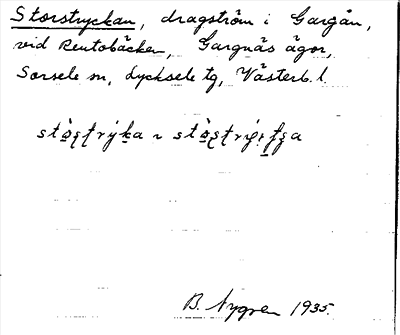 Storstryckan, dragström i Gargån,
vid Rentobäcken, Gargnäs ägor,
Sorsele sn, Lycksele tg, Västerb. l.
B. Nygren 1935.